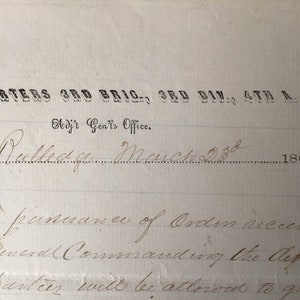 RTERS 3RD BRIG., 3RD DIV., 4TH A.
Adj't Gen'ls Office.
Rutledge March 23d 186
pursuance of Orders recei
General Commanding the
arties will be allowed to g